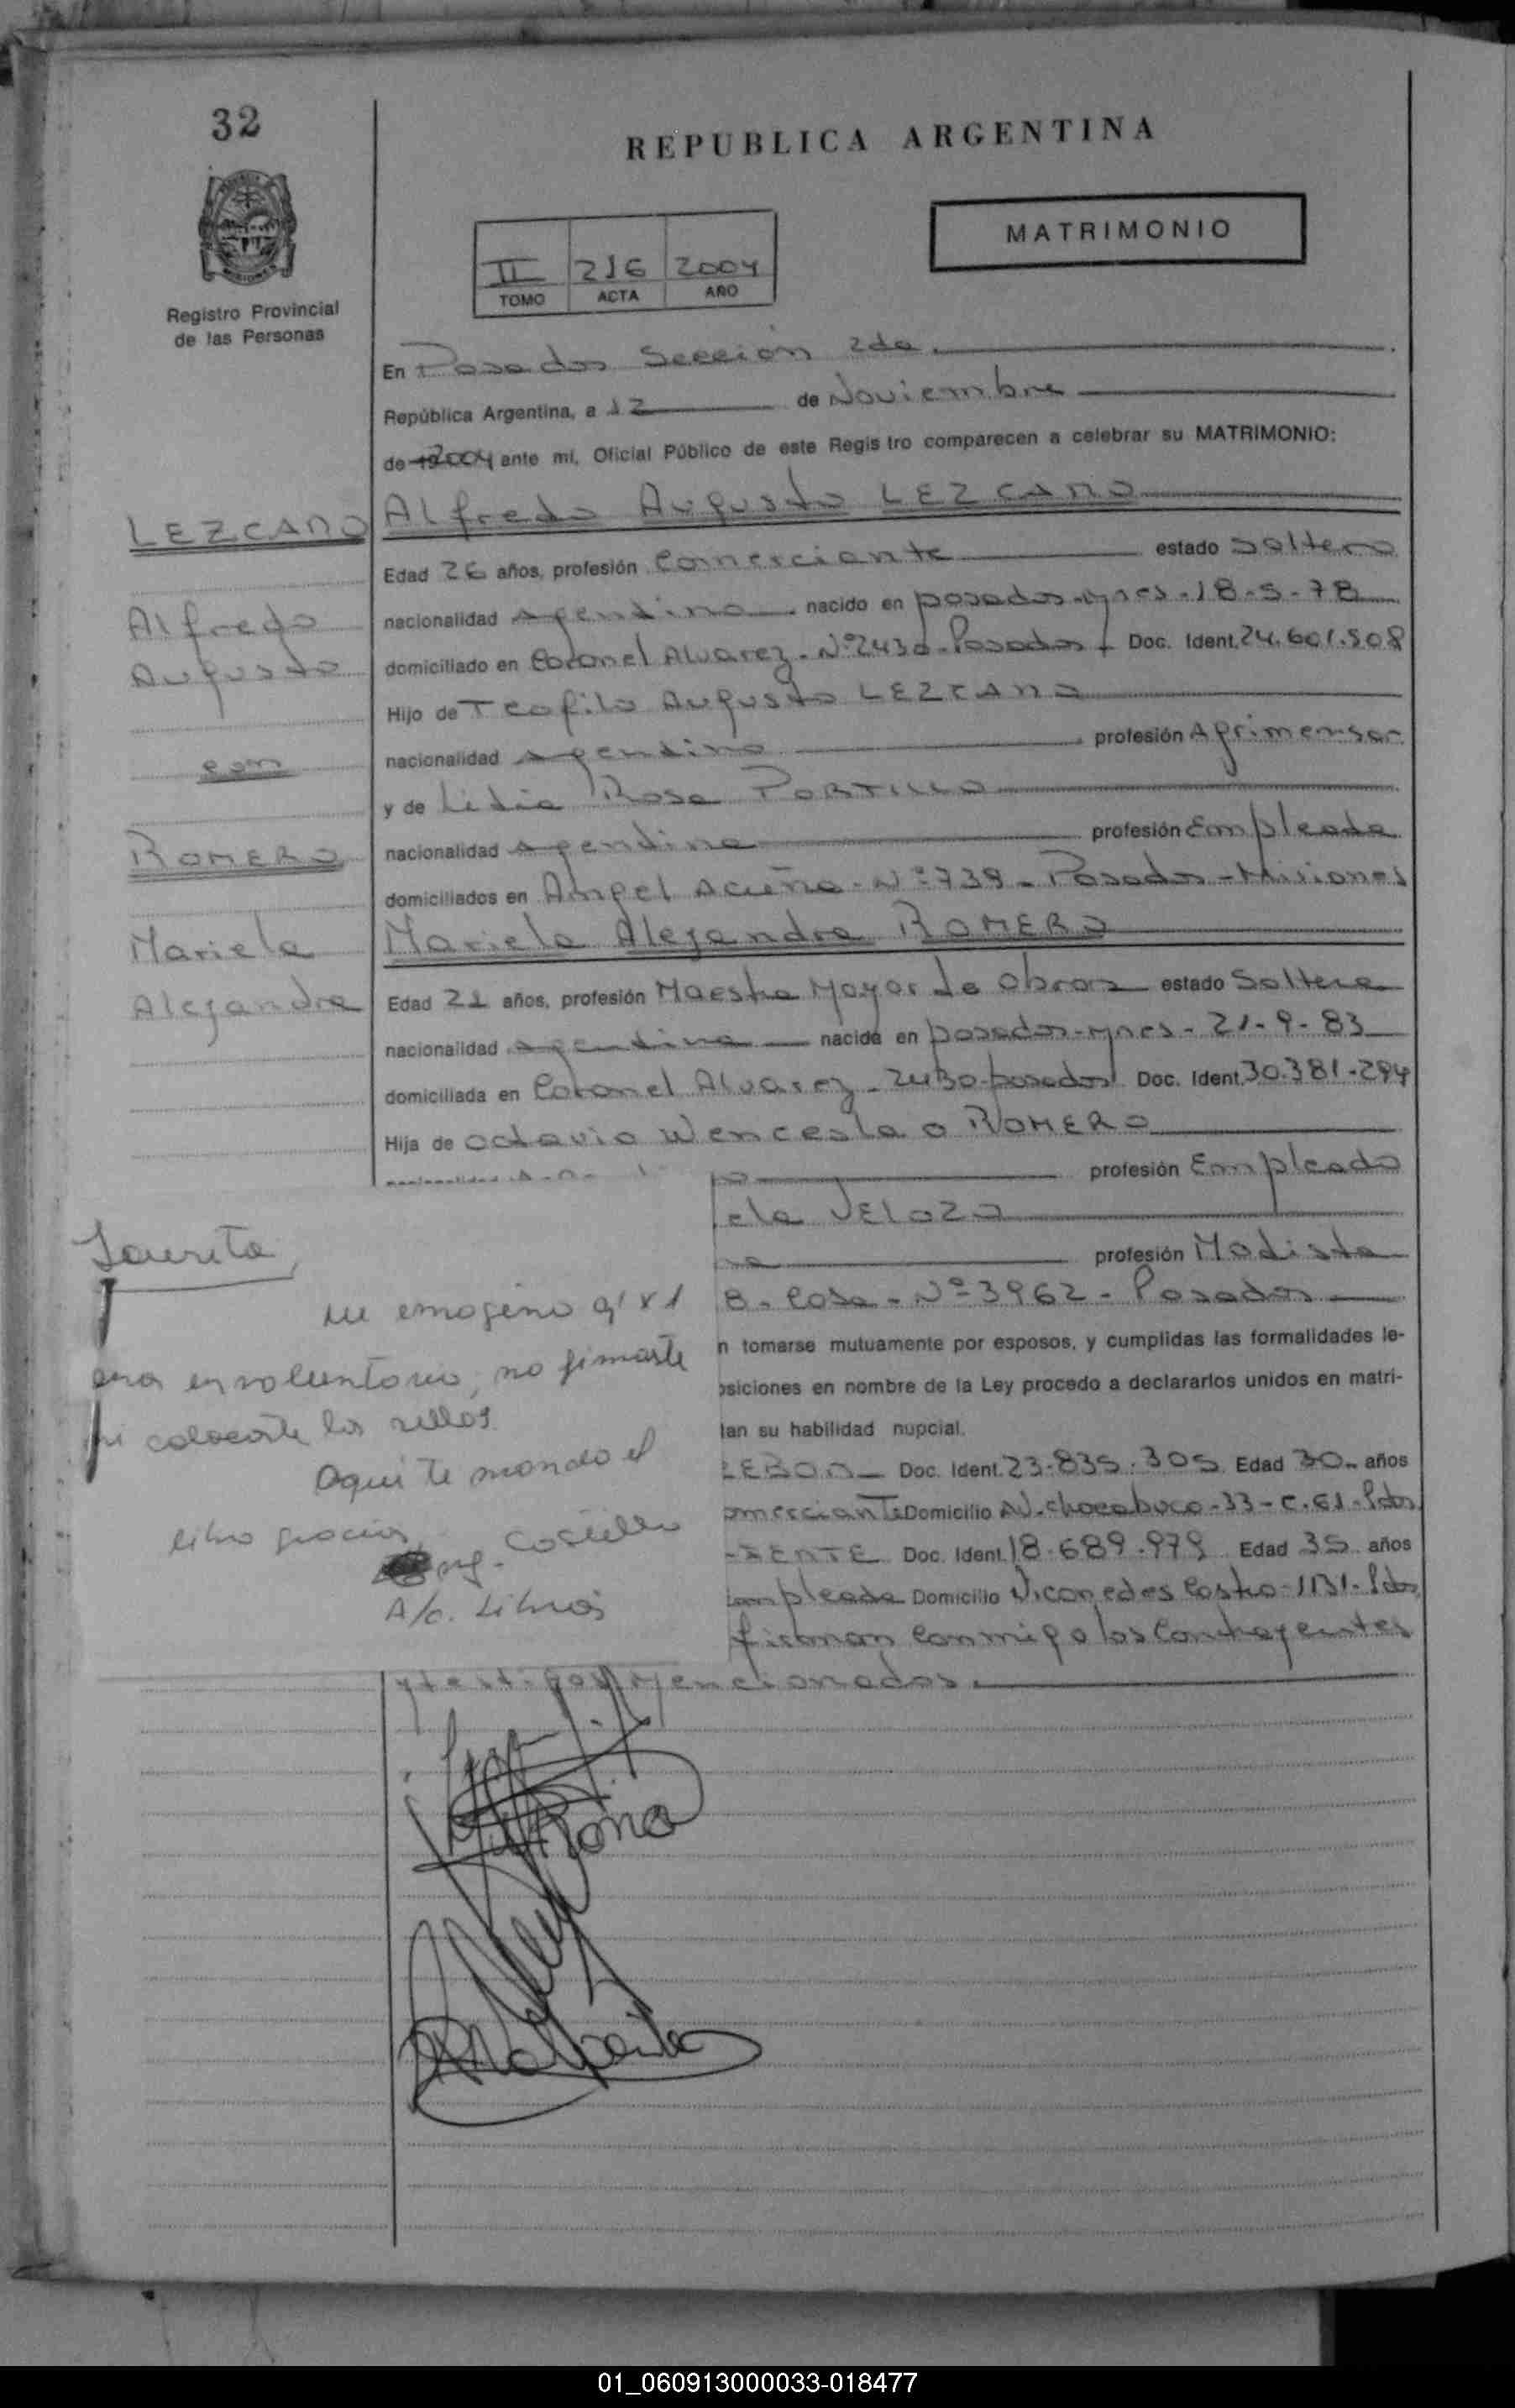 32
REPUBLICA ARGENTINA
MATRIMONIO
II 216 2004
TOMO ACTA AÑO
Registro Provincial
de las Personas
En Posadas Sección 2da.
República Argentina, a 12 de Noviembre
de 2004 ante mí, Oficial Público de este Registro comparecen a celebrar su MATRIMONIO:
LEZCANO
Alfredo
Augusto
con
ROMERO
Mariela
Alejandra
Alfredo Augusto LEZCANO
Edad 26 años, profesión Comerciante estado Soltero
nacionalidad Argentino nacido en posadas-mnes-18-5-78
domiciliado en Coronel Alvarez-Nº2430-Posadas Doc. Ident. 24.601.508
Hijo de Teofilo Augusto LEZCANO
nacionalidad Argentino profesión Agrimensor
y de Lidia Rosa PORTILLO
nacionalidad Argentina profesión Empleada
domiciliados en Angel Acuña-Nº739-Posadas-Misiones
Mariela Alejandra ROMERO
Edad 21 años, profesión Maestra Mayor de Obras estado Soltera
nacionalidad Argentina nacida en posadas-mnes-21-9-83
domiciliada en Coronel Alvarez-2430-posadas Doc. Ident. 30.381.294
Hija de Octavio Wenceslao ROMERO
profesión Empleado
ela VELOZO
na profesión Modista
8-Casa-Nº3962-Posadas
n tomarse mutuamente por esposos, y cumplidas las formalidades le-
osiciones en nombre de la Ley procedo a declararlos unidos en matri-
tan su habilidad nupcial.
Doc. Ident. 23.835.305 Edad 30 años
omerciante Domicilio Av. chacabuco-33-C.61-Pdas
ENTE Doc. Ident. 18.689.979 Edad 35 años
Empleada Domicilio Nicomedes Castro-1131-Pdas
firman conmigo los Contrayentes
y testigos mencionados.
Laurita,
me emogino q'
era envoluntorio, no firmaste
ni colocaste los sellos.
Aqui te mando el
libro gracias
A/c. Libros
01_060913000033-018477